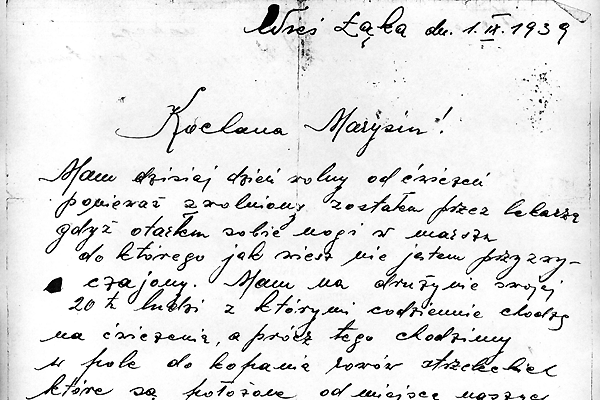 Wieś Łąka dn. 1.IX.1939
Kochana Marysiu!
Mam dzisiaj dzień wolny od ćwiczeń
ponieważ zwolniony zostałem przez lekarza
gdyż otarłem sobie nogi w marszu
do którego jak wiesz nie jestem przyzwy-
czajony. Mam na drużynie swojej
20 tu ludzi z którymi codziennie chodzę
na ćwiczenia, a prócz tego chodzimy
w pole do kopania rowów strzeleckich
które są położone od miejsca naszego